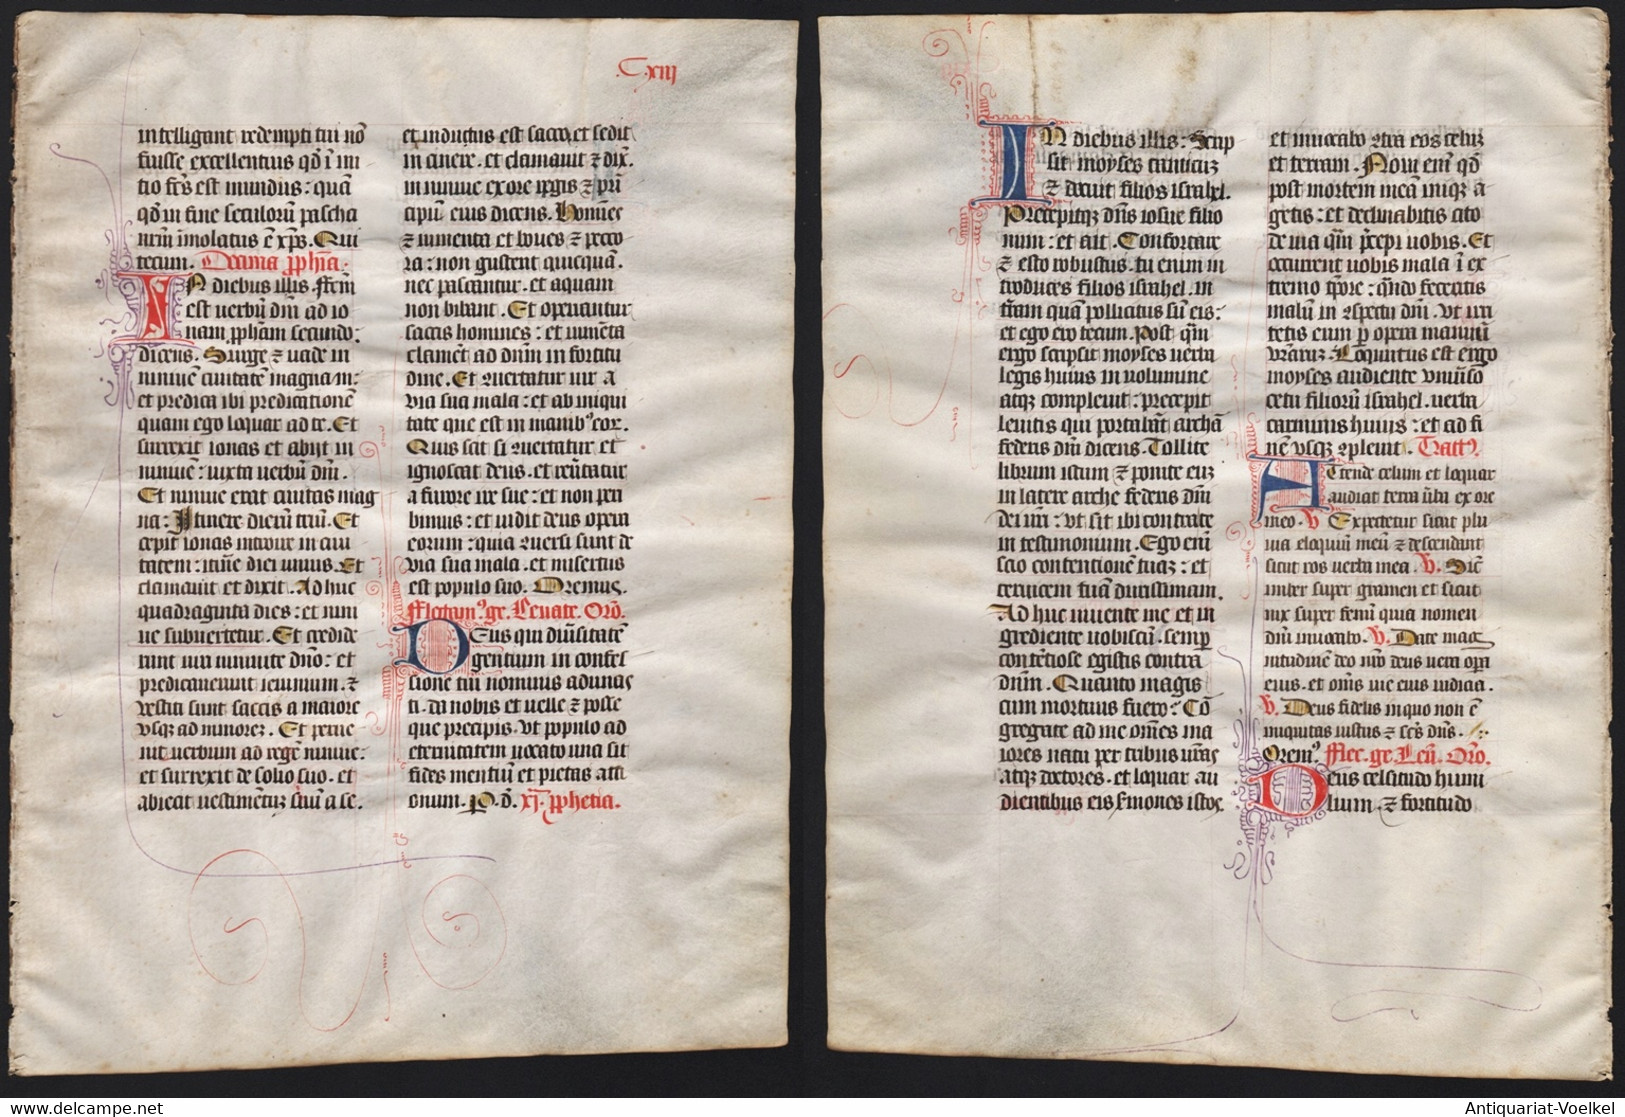 C.xiij
intelligant redempti tui nō
fuisse excellentius qđ ī ini
tio fc̄s est mundus: quā
qđ in fine seculorū pascha
nr̄m īmolatus ē xp̄s. Qui
tecum. Decima p̱ph̄ia.
IN diebus illis. Fc̄m
est verbū dn̄i ad io
nam p̱ph̄am secundo:
dicens. Surge ⁊ vade in
niniuē ciuitatē magnam:
et predica ibi predicationē
quam ego loquar ad te. Et
surrexit ionas et abijt in
niniuē: iuxta verbū dn̄i.
Et niniue erat ciuitas mag
na: Itinere dierū triū. Et
cepit ionas introire in ciui
tatem: itin̄e diei unius. Et
clamauit et dixit. Ad huc
quadraginta dies: et nini
ue subuertetur. Et credide
runt viri niniuite dn̄o: et
predicauerunt ieiunium. ⁊
vestiti sunt saccis a maiore
vsqꝫ ad minorez. Et perue
nit verbum ad regē niniue:
et surrexit de solio suo. et
abiecit vestimentuꝫ suū a se.
et indutus est sacco, et sedit
in cinere. et clamauit ⁊ dix̄.
in niniue ex ore regis ⁊ prī
cipiū eius dicens. Homīes
⁊ iumenta et boues ⁊ peco
ra: non gustent quicquā.
nec pascantur. et aquam
non bibant. Et operiantur
saccis homines: et iumēta
clamēt ad dn̄m in fortitu
dine. Et ꝯuertatur vir a
via sua mala: et ab iniqui
tate que est in manibꝰ eoꝝ.
Quis scit si ꝯuertatur et
ignoscat deus. et reūtatur
a furore ire sue: et non peri
bimus: et vidit deus opera
eorum: quia ꝯuersi sunt de
via sua mala. et misertus
est populo suo. Oremus.
Flectamꝰ ge. Leuate. Orō.
DEus qui diūsitatē
gentium in confes
sione tui nominis adunas
ti. da nobis et velle ⁊ posse
que precipis. vt populo ad
eternitatem vocato una sit
fides mentiū et pietas acti
onum. P. d. xj. p̱phetia.
IN diebus illis: Scrip
sit moyses canticuꝫ
⁊ docuit filios israhel.
Precepitqꝫ dn̄s iosue filio
nun: et ait. Confortare
⁊ esto robustus. tu enim in
troduces filios israhel. in
tr̄am quā pollicitus sū eis:
et ego ero tecum. Post qm̄
ergo scripsit moyses verba
legis huius in volumine
atqꝫ compleuit: precepit
leuitis qui portabāt archā
federis dn̄i dicens. Tollite
librum istum ⁊ ponite euꝫ
in latere arche federis dn̄i
dei vr̄i: vt sit ibi contra te
in testimonium. Ego enī
scio contentionē tuaꝫ: et
ceruicem tuā durissimam.
Ad huc viuente me et in
grediente vobiscū. semp̱
contētiose egistis contra
dn̄m. Quanto magis
cum mortuus fuero: Cō
gregate ad me om̄es ma
iores natu per tribus vr̄as
atqꝫ doctores. et loquar au
dientibus eis s̄mones istos.
et inuocabo ꝯtra eos celuꝫ
et terram. Noui enī qđ
post mortem meā iniqꝫ a
getis: et declinabitis cito
de via qm̄ p̄cepi vobis. Et
occurrent vobis mala ī ex
tremo tp̄ore: qn̄do feceritis
malū in ꝯspectu dn̄i. vt irri
tetis eum p̱ opera manuū
vr̄aruꝫ. Loquutus est ergo
moyses audiente vniūso
cetu filiorū israhel. verba
carminis huius: et ad fi
nē vsqꝫ ꝯpleuit. Tractꝰ.
ATtende celum et loquar
audiat terra v̄ba ex ore
meo. V Expectetur sicut plu
uia eloquiū meū ⁊ descendant
sicut ros verba mea. V. Sic̄
imber super gramen et sicut
nix super fenū quia nomen
dn̄i inuocabo. V. Date mag
nitudinē deo nr̄o deus vera op̱a
eius. et om̄s vie eius iudicia.
V. Deus fidelis in quo non ē
iniquitas iustus ⁊ sc̄s dn̄s.
Oremꝰ. Flec. ge. Leū. Orō.
DEus celsitudo humi
lium. ⁊ fortitudo
Antiquariat-Voelkel
www.delcampe.net